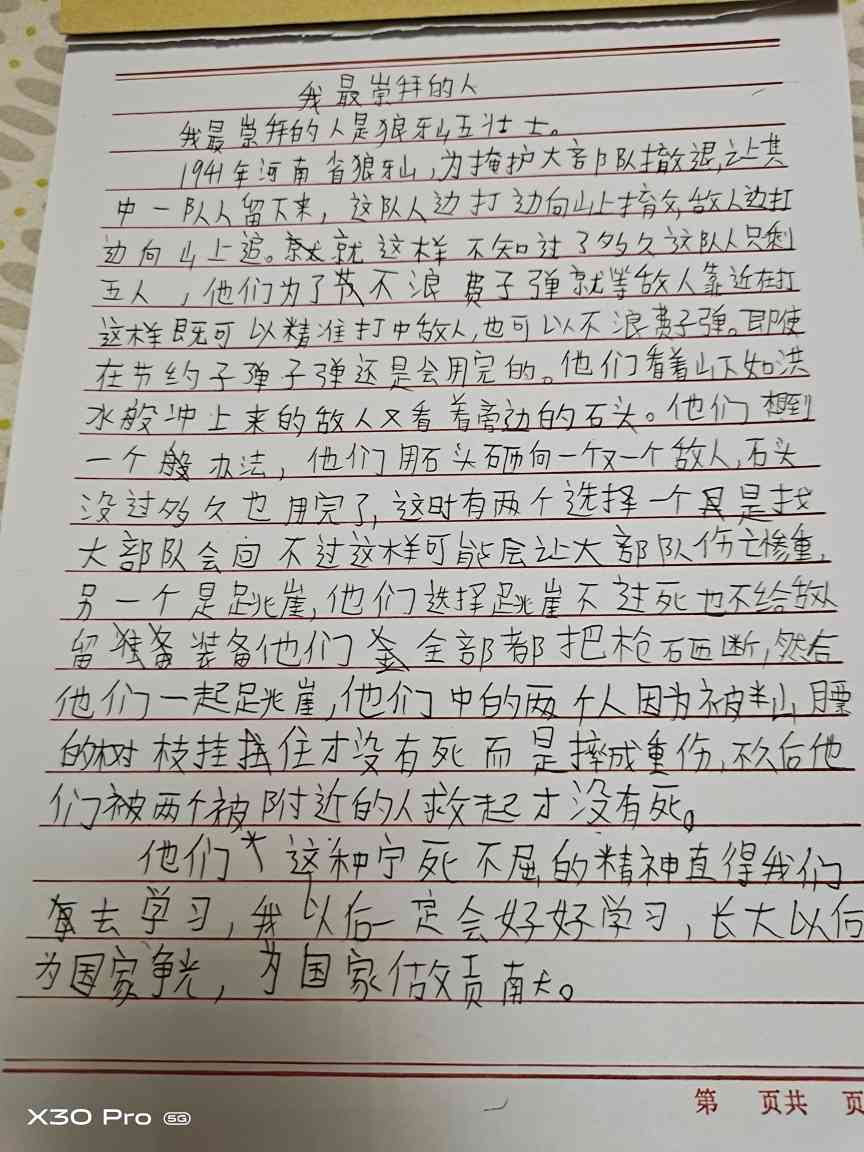 我最崇拜的人
我最崇拜的人是狼牙山五壮士。
1941年河南省狼牙山,为掩护大部队撤退,让其
中一队人留下来,这队人边打边向山上撤,敌人边打
边向山上追。就这样不知过了多久这队人只剩
五人,他们为了不浪费子弹就等敌人靠近在打
这样既可以精准打中敌人,也可以不浪费子弹。即使
在节约子弹子弹还是会用完的。他们看着山下如洪
水般冲上来的敌人又看着旁边的石头。他们想到
一个办法,他们用石头砸向一个又一个敌人,石头
没过多久也用完了,这时有两个选择一个是找
大部队会回不过这样可能会让大部队伤亡惨重,
另一个是跳崖,他们选择跳崖不过死也不给敌人
留装备他们全部都把枪砸断,然后
他们一起跳崖,他们中的两个人因为被半山腰
的树枝挂住才没有死而是摔成重伤,不久后他
们被两个被附近的人救起才没有死。
他们这种宁死不屈的精神直得我们
去学习,我以后一定会好好学习,长大以后
为国家争光,为国家做贡南犬。
第 页共 页
X30 Pro 5G